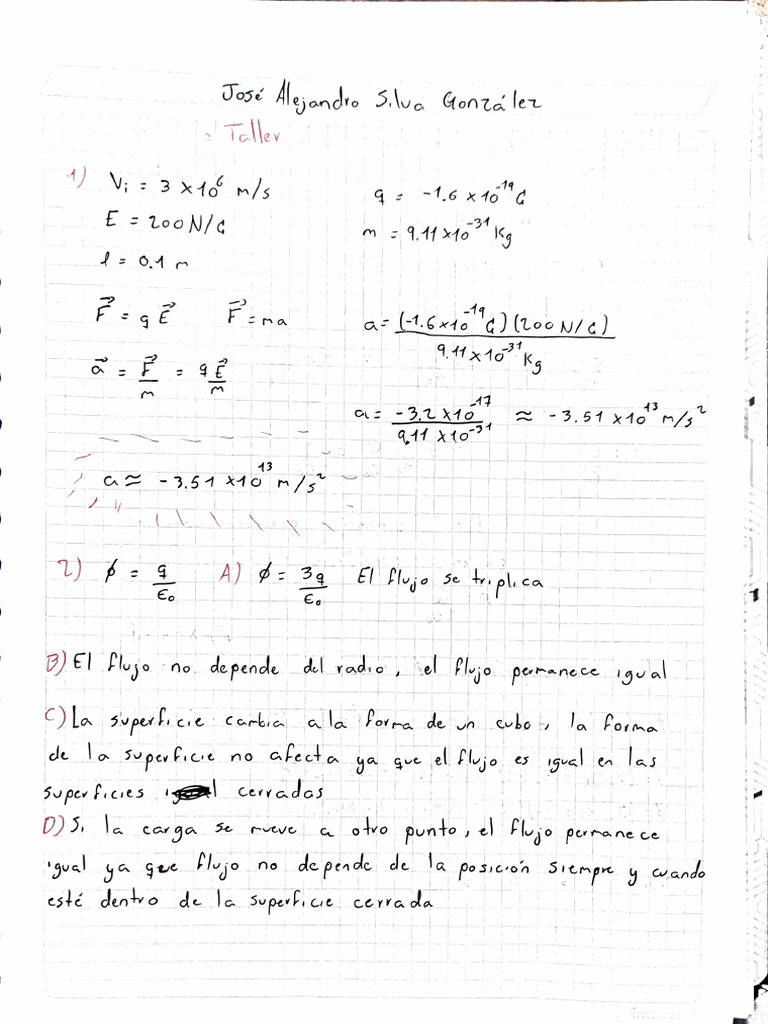 José Alejandro Silva González
Taller
1) Vi = 3 x 10⁶ m/s q = -1.6 x 10⁻¹⁹ C
E = 200 N/C m = 9.11 x 10⁻³¹ Kg
l = 0.1 m
F⃗ = q E⃗ F⃗ = ma a = (-1.6 x 10⁻¹⁹ C) (200 N/C) / 9.11 x 10⁻³¹ Kg
a⃗ = F⃗/m = qE⃗/m
a = -3.2 x 10⁻¹⁷ / 9.11 x 10⁻³¹ ≈ -3.51 x 10¹³ m/s²
a ≈ -3.51 x 10¹³ m/s²
2) ϕ = q/ε₀ A) ϕ = 3q/ε₀ El flujo se triplica
B) El flujo no depende del radio, el flujo permanece igual
C) La superficie cambia a la forma de un cubo, la forma
de la superficie no afecta ya que el flujo es igual en las
superficies cerradas
D) Si la carga se mueve a otro punto, el flujo permanece
igual ya que flujo no depende de la posición siempre y cuando
esté dentro de la superficie cerrada